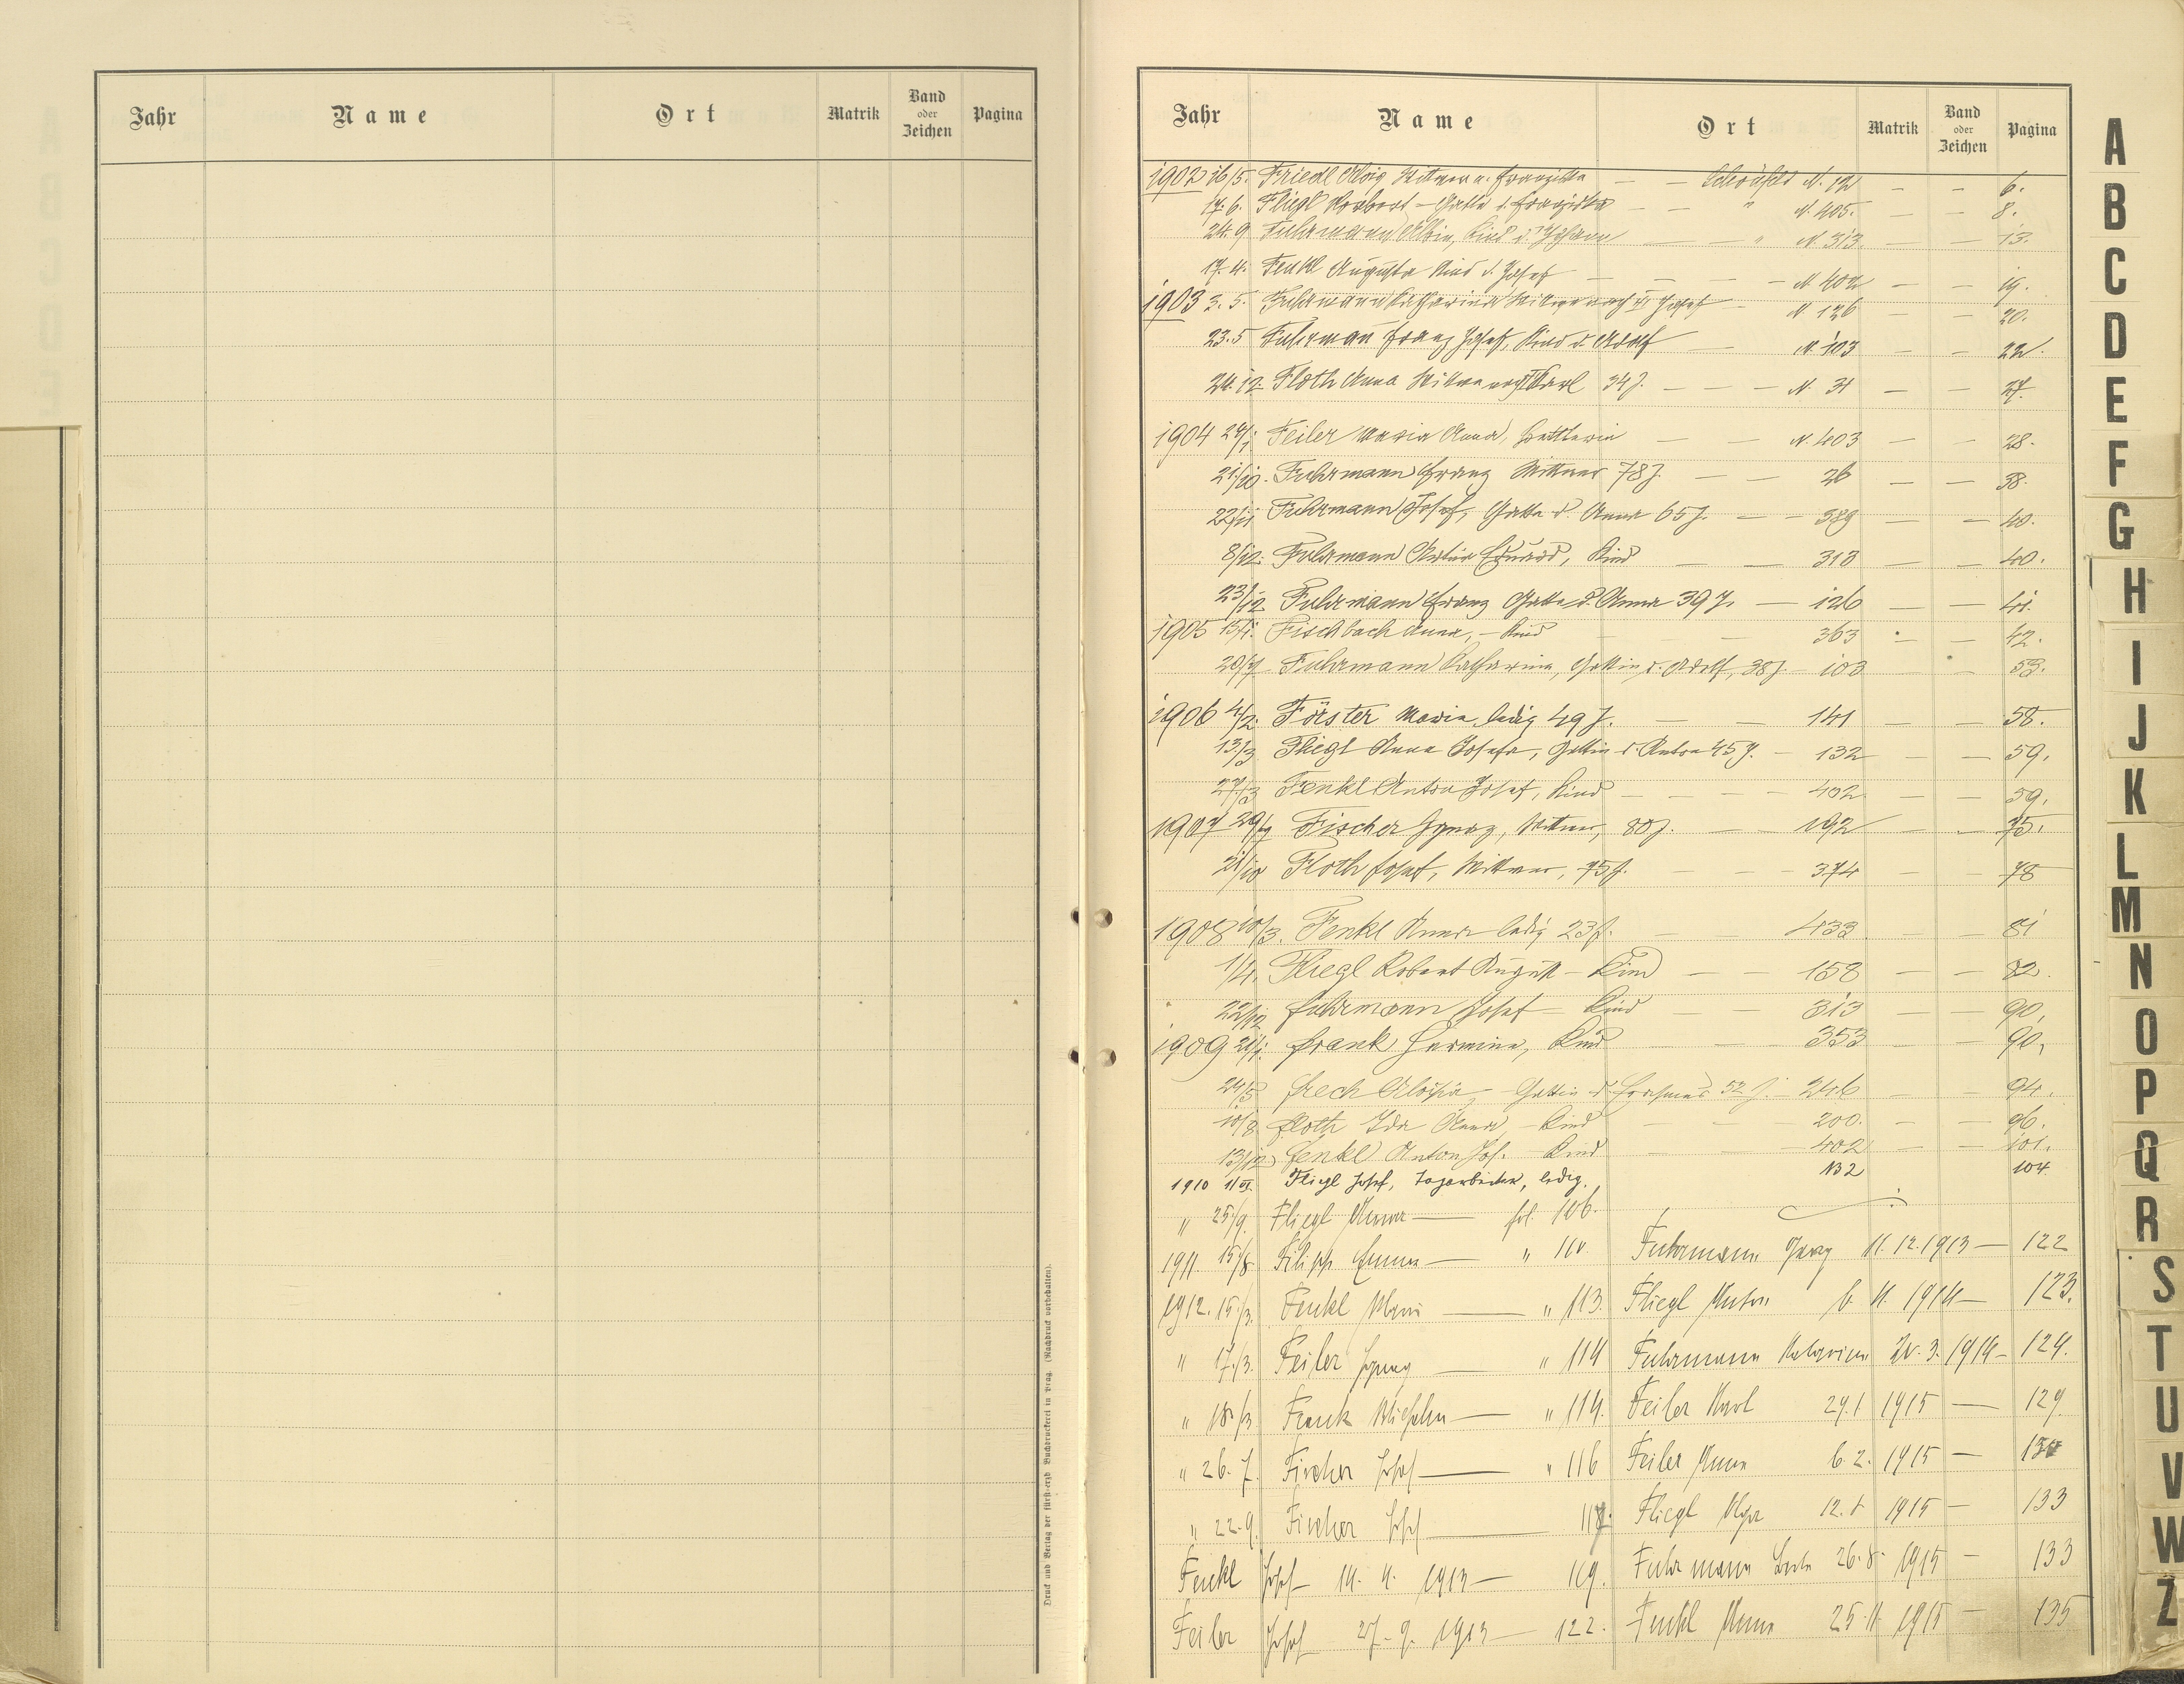 Jahr Name Ort Matrik Band oder Zeichen Pagina
Druck und Verlag der fürst-erzb. Buchdruckerei in Prag. (Nachdruck vorbehalten).
Jahr Name Ort Matrik Band oder Zeichen Pagina
1902 16/5. Friedl Alois Witwer n. Franziska — — N. 12 — — 6.
17.6. Fliegl Norbert — Gatte d. Franziska — — " N. 405. — — 8.
24.9 Fuhrmann Albin, Kind d. Johann — — " N. 313. — — 13.
17.4. Fenkl Augusta Kind d. Josef — — — — N 402 — — 19.
1903 3.5. Fuhrmann Katharina Witwe nach Josef — N 126 — — 20.
23.5 Fuhrmann Franz Josef, Kind d. Adolf — — N. 103 — — 22.
24.12 Floth Anna Witwe nach Karl 34 J. — — — N. 31 — — 27.
1904 24/1. Feiler Maria Anna, — — N. 403 — — 28.
21/10. Fuhrmann Franz Witwer 78 J. — — 26 — — 38.
22/11 Fuhrmann Josef, Gatte d. Anna 65 J. — — 389 — — 40.
8/12. Fuhrmann Eduard, Kind — — 313 — — 40.
23/12 Fuhrmann Franz Gatte d. Anna 39 J. — 126 — — 41.
1905 15/1. Fischbach Anna, — Kind 363 — — 42.
20/7 Fuhrmann Katharina, Gattin d. Adolf, 38 J. — 103 — — 53.
1906 4/2. Förster Maria ledig 49 J. — 141 — — 58.
13/3 Fliegl Anna Josefa, Gattin d. Anton 45 J. — 132 — — 59.
27/3 Fenkl Anton Josef, Kind — — — — 402 — — 59.
1907 29/7 Fischer Ignaz, Witwer, 80 J. — — 192 — — 75.
21/10 Floth Josef, Witwer, 75 J. — — — 374 — — 78
1908 10/3. Fenkl Anna ledig 23 J. — — 433 — — 81
1/4. Fliegl Robert August — Kind — — 158 — — 82.
22/12 Fuhrmann Josef — Kind — — 313 — — 90,
1909 21/1. Frank Hermine, Kind — 353 — — 90,
24/5 Frech Aloisia, — Gattin d. 52 J. — 246 — — 94.
10/8 Floth Ida Anna, — Kind — — 200. — — 96.
13/12 Fenkl Anton Jos. — Kind — — 402 — — 101.
1910 1/VI. Fliegl Josef, Tagarbeiter, ledig. 132 104
" 25/9. Fliegl Anna — fol. 106.
1911. 15/8 Filipp Emma — " 110. Fuhrmann 11. 12. 1913 — 122
1912. 15/3. Fenkl Marie — " 113. Fliegl Anton 6. 11. 1914 — 123.
" 17/3. Feiler Ignaz — " 114 Fuhrmann Katarina 20. 3. 1914 — 124.
" 18/3 Frank Wilhelm — " 114. Feiler Karl 29.1 1915 — 129.
" 26. 7. Fischer Josef — " 116 Feiler Anna 6. 2. 1915 — 130
" 22.9. Fischer Josef — 117. Fliegl Olga 12. 8 1915 — 133
Fenkl Josef — 14. 4. 1913 — 119. Fuhrmann Berta 26. 8. 1915 — 133
Feiler Josef 27. 9. 1913 — 122. Fenkl Anna 25. 11. 1915 — 135
A
B
C
D
E
F
G
H
I
J
K
L
M
N
O
P
Q
R
S
T
U
V
W
Z